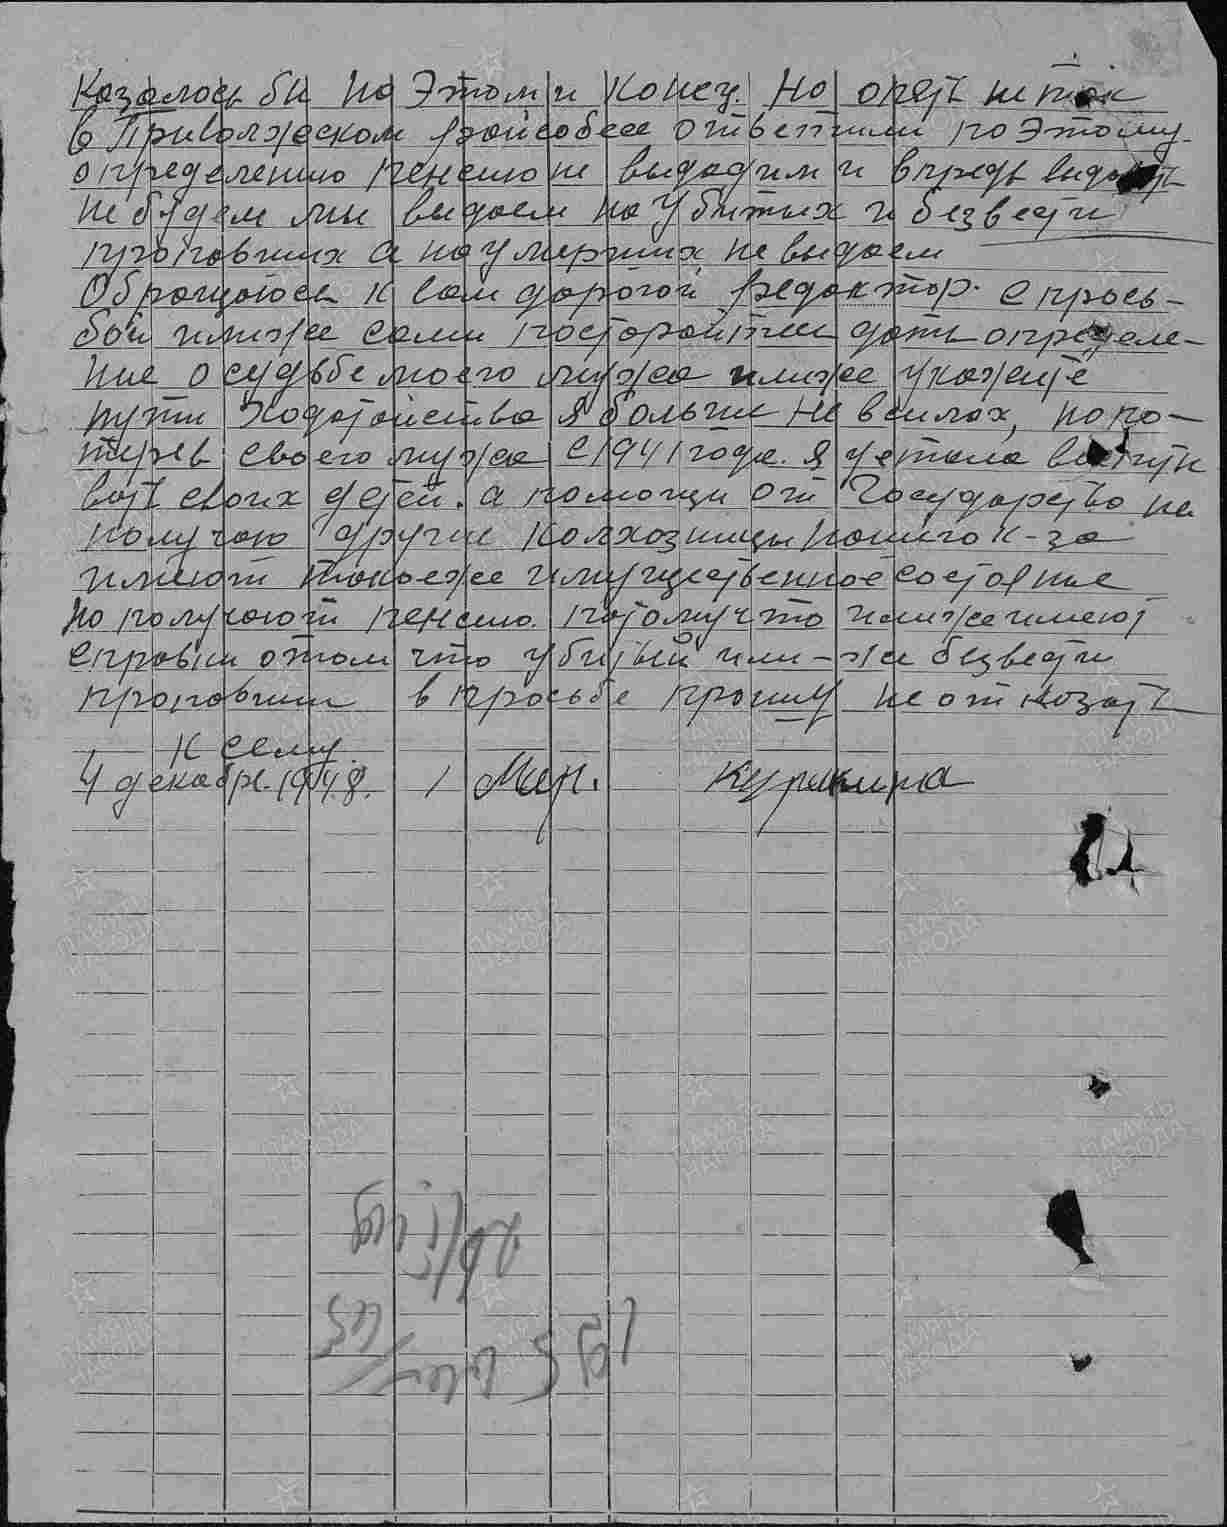 Казалось бы на Этом и конец. Но опять не так
в Приволжском райсобесе ответили по Этому
определению пенсию не выдадим и впредь выдавать
не будем мы выдаем на убитых и безвести
пропавших а на умерших не выдаем
Обращаюсь к вам дорогой редактор. с прось-
бой или же сами постарайтесь дать определе-
ние о судьбе моего мужа или же укажите
пути ходатайства я больше не в силах, но по-
теряв своего мужа с 1941 года. я устала
своих детей. а помощи от Государства не
получаю другие колхозницы нашего к-за
имеют такое же имущественное состояние
но получают пенсию. потому что они же имеют
справки о том что убитый или-же безвести
пропавший в просьбе прошу не отказать
К сему
4 декабря. 1948. /
ПАМЯТЬ НАРОДА